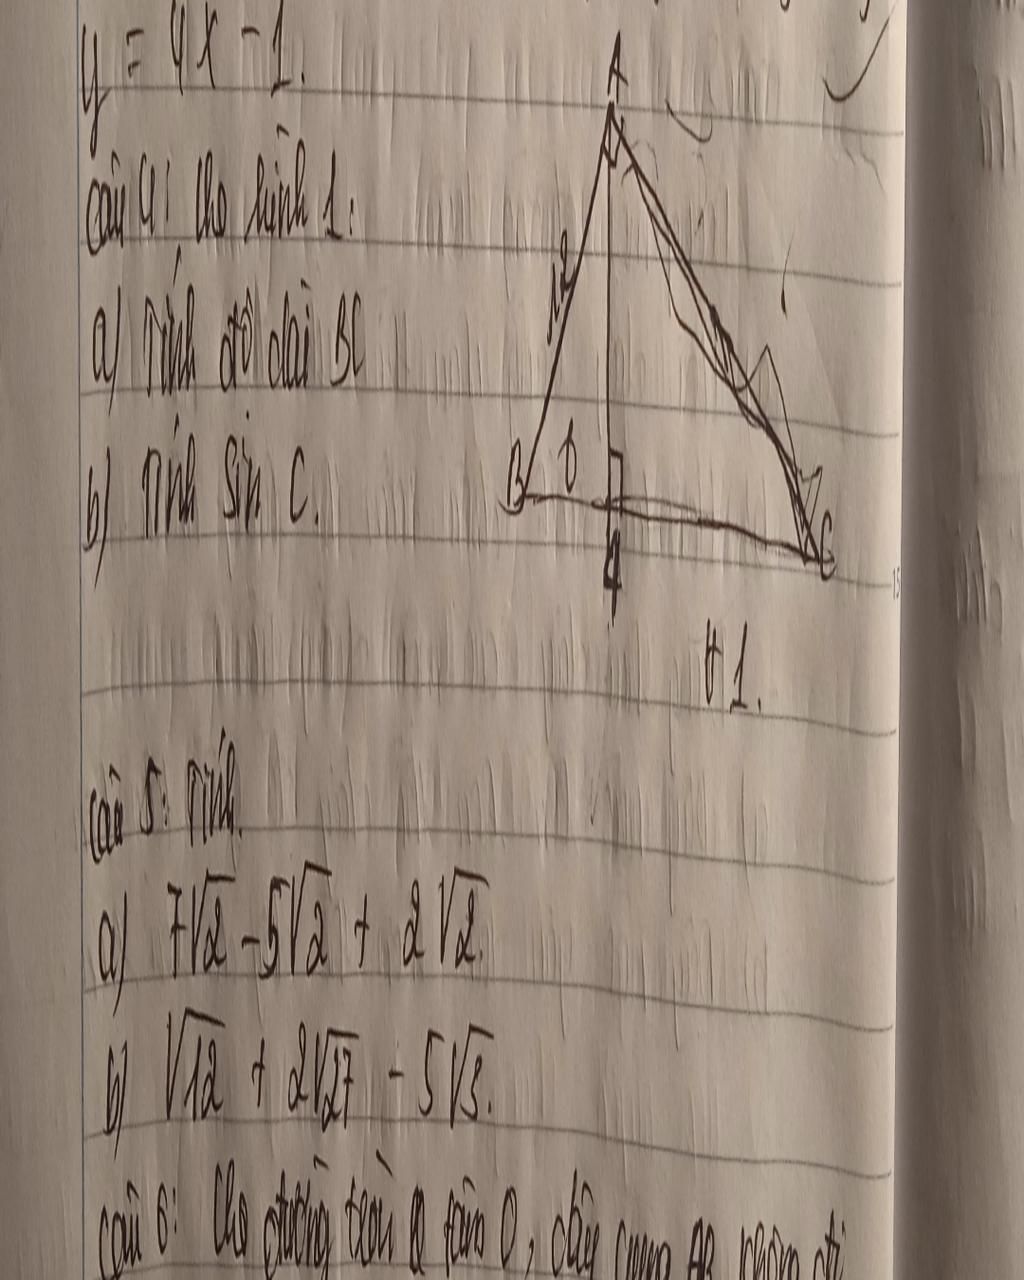 y = 4x - 1.
Câu 4: Cho hình 1.
a) Tính độ dài BC
b) Tính sin C.
A
12
B
6
C
H 1.
15
Câu 5: Tính.
a) 7√2 - 5√2 + 2√2.
b) √12 + 2√27 - 5√3.
Câu 6: Cho đường tròn tâm O, dây cung AB không đi